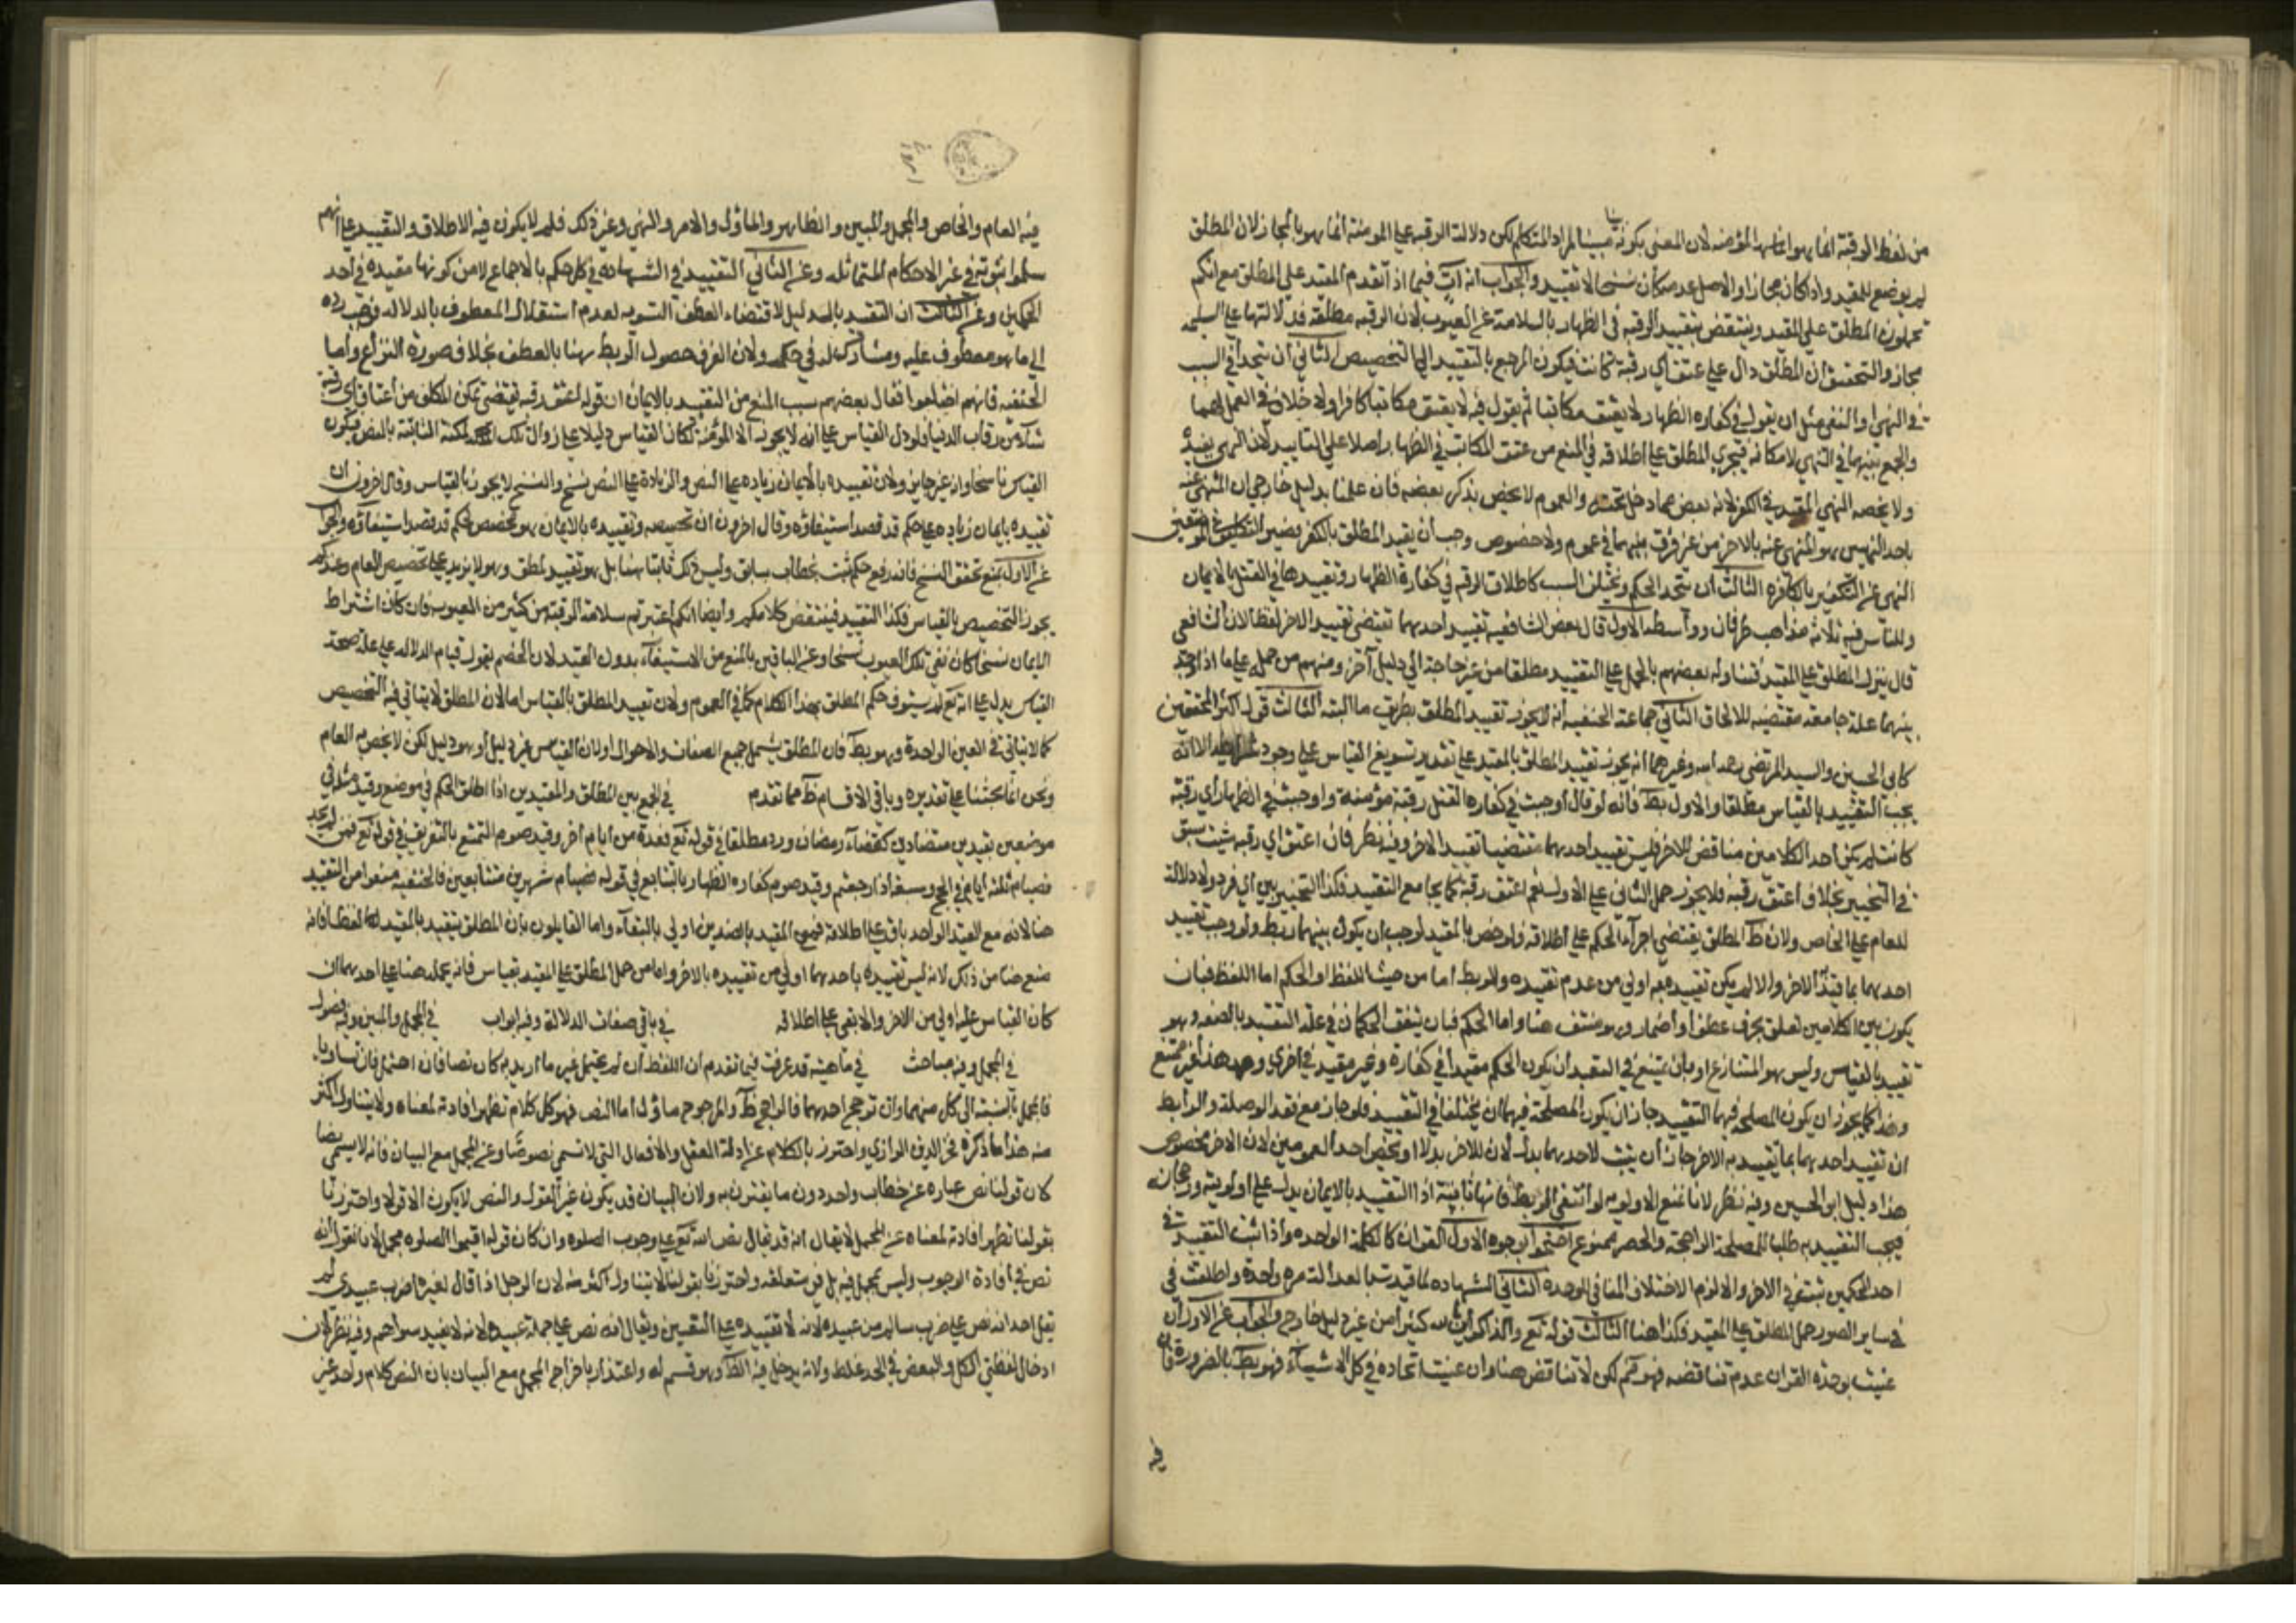 من لفظ الرقبة انما هو المؤمنه لان المعنى بكونه مبينا المراد المتكلم لكن دلالة الرقبه على المومنة انما هو بالمجاز لان المطلق
لم يوضع للمقيد واذا كان مجازا والاصل عدمه كان نسخا لا تقييد والجواب انه آت فيما اذا تقدم المقيد على المطلق مع انكم
تحملون المطلق على المقيد وينتقض بتقييد الرقبه في الظهار بالسلامة عن العيوب لان الرقبه مطلقة فدلالتها على السليمه
مجاز والتحقيق ان المطلق دال على عتق اي رقبة كانت فيكون المرجع بالتقييد الى التخصيص الثاني ان يتحد في السبب
في النهى او النفى مثل ان يقول في كفاره الظهار لا يعتق مكاتبا ثم يقول فيه لا يعتق مكاتبا كافرا ولا خلاف في العمل بهما
والجمع بينهما في النهي لامكانه فيجري المطلق على اطلاقه في المنع من عتق المكاتب في الظهار اصلا على التابيد لان النهي يفيده
ولا يخصه النهي المقيد في الكفر لانه بعض ما دخل تحته والعموم لا يخص بذكر بعضه فان علمنا بدليل خارجي ان المنهى عنه
باحد النهيين هو المنهى عنه بالاخر من غير فرق بينهما في عموم ولا خصوص وجب ان يقيد المطلق بالكفر
النهى عن التكفير بالكافره الثالث ان يتحد الحكم ويختلف السبب كاطلاق الرقبه في كفارة الظهار وتقييدها في القتل بالايمان
وللناس فيه ثلاثة مذاهب طرفان وواسطه الاول قال بعض الشافعيه تقييد احدهما يقتضى تقييد الاخر لفظا لان الشافعي
قال ينزل المطلق على المقيد فتناوله بعضهم بالحمل على التقييد مطلقا من غير حاجة الى دليل آخر ومنهم من حمله على ما اذا وجد
بينهما علة جامعه مقتضيه للالحاق الثاني جماعة الحنفيه انه لا يجوز تقييد المطلق بطريق ما البته الثالث قول اكثر المحققين
كابي الحسين والسيد المرتضى رحمه الله وغيرهما انه يجوز تقييد المطلق بالمقيد على تقدير تسويغ القياس على وجود شرايطه الا انه
يجب التقييد بالقياس مطلقا والاول بط فانه لو قال اوجبت في كفارة القتل رقبة مؤمنه واوجبت في الظهار اي رقبة
كانت لم يكن احد الكلامين مناقض للاخر فليس تقييد احدهما مقتضيا تقييد الاخر وفيه نظر فان اعتق اي رقبه شئت سبق
في التخيير بخلاف اعتق رقبه فلا يجوز حمل الثاني على الاول نعم اعتق رقبة كما يجامع التقييد فكذا التخيير بين اي فرد ولا دلالة
للعام على الخاص ولان ظ المطلق يقتضي اجراء الحكم على اطلاقه فلو خص بالمقيد لوجب ان يكون بينهما ربط ولو وجب تقييد
احدهما بما قيد الاخر والا لم يكن تقييده به اولى من عدم تقييده والربط اما من حيث اللفظ او الحكم اما اللفظ فبان
يكون بين الكلامين تعلق بحرف عطف او اضمار وهو منتف هنا واما الحكم فبان يتفق الحكمان في علة التقييد بالصفه وهو
تقييد بالقياس وليس هو المتنازع او بان يمتنع في التعبد ان يكون الحكم مقيدا في كفارة وغير مقيد في اخرى وهذا غير ممتنع
وهذا كما يجوز ان يكون المصلحه فيهما التقييد جاز ان يكون المصلحة فيهما ان يختلفا في التقييد فلو جاز مع فقد الوصلة والرابط
ان تقييد احدهما بما تقييد به الاخر جاز ان يثبت لاحدهما بدل لان للاخر بدلا او تخص احد العمومين لان الاخر مخصوص
هذا دليل ابو الحسين وفيه نظر لانا نمنع الاولويه لو انتفى الربط فانها ثابتة اذ التقييد بالايمان يدل على اولويته ورجحانه
فيجب التقييد به طلبا للمصلحة الراجحة والحصر ممنوع احتجوا بوجوه الاول القران كالكلمة الواحده واذا ثبت التقييد في
احد الحكمين ثبت في الاخر والا لزم الاختلاف المنافي للوحده الثاني الشهاده لما قيدت بالعدالة مره واحدة واطلقت في
في ساير الصور حمل المطلق على المقيد فكذا هنا الثالث قوله تع والذاكرين الله كثيرا من غير دليل خارج والجواب عن الاول ان
عنيت بوحدة القران عدم تناقضه فهو كم لكن لا تناقض هنا وان عنيت اتحاده في كل الاشياء فهو بط بالضرورة فان
فيه
فيه العام والخاص والمجمل والمبين والظاهر والماؤل والامر والنهي وغير ذلك فلم لا يكون فيه الاطلاق والتقييد على انهم
سلموا ثبوته في غير الاحكام المتماثله وعن الثاني التقييد في الشهاده في كل حكم بالاجماع لا من كونها مقيده في احد
الحكمين وعن الثالث ان التقييد بالدليل لاقتضاء العطف التسويه لعدم استقلال المعطوف بالدلاله فوجب رده
الى ما هو معطوف عليه ومشاركته له في حكمه ولان الفرق حصول الربط هنا بالعطف بخلاف صورة النزاع واما
الحنفيه فانهم اختلفوا فقال بعضهم سبب المنع من التقييد بالايمان ان قوله اعتق رقبه يقتضى تمكن المكلف من اعتاق اي رقبة
شاء من رقاب الدنيا فلو دل القياس على انه لا يجوز الا المؤمنة لكان القياس دليلا على زوال تلك المكنة الثابتة بالنص فيكون
القياس ناسخا وانه غير جايز ولان تقييده بالايمان زياده على النص والزيادة على النص نسخ والنسخ لا يجوز بالقياس وقال اخرون ان
تقييده بايمان زياده على حكم قد قصد استيفاؤه وقال اخرون ان تخصيصه وتقييده بالايمان هو تخصيص لحكم قد قصد استيفاؤه والجواب
عن الاول بمنع تحقق النسخ فانه رفع حكم ثبت بخطاب سابق وليس ذلك ثابتا هنا بل هو تقييد لمطلق وهو لا يزيد على تخصيص العام وعندكم
يجوز التخصيص بالقياس فكذا التقييد فينتقض كلامكم وايضا انكم اعتبرتم سلامة الرقبة من كثير من العيوب فان كان اشتراط
الايمان نسخا كان نفي تلك العيوب نسخا وعن الباقين بالمنع من الاستيفاء بدون القيد لان الخصم يقول قيام الدلاله على علة صحة
القياس يدل على انه تع لم يستوف حكم المطلق بهذا الكلام كما في العموم ولان تقييد المطلق بالقياس اما لان المطلق لا يتاتى فيه التخصيص
كما لا يتاتى في العين الواحدة وهو بط فان المطلق يشمل جميع الصفات والاحوال او لان القياس غير دليل او هو دليل لكن لا يخص به العام
ونحن انما بحثنا على تقديره وباقي الاقسام ظ مما تقدم في الجمع بين المطلق والمقيدين اذا اطلق الحكم في موضع وقيد مثله في
موضعين بقيدين متضادين كقضاء رمضان ورد مطلقا في قوله تع فعدة من ايام اخر وقيد صوم التمتع بالتفريق في قوله تع فمن لم يجد
فصيام ثلثه ايام في الحج وسبعة اذا رجعتم وقيد صوم كفاره الظهار بالتتابع في قوله فصيام شهرين متتابعين فالحنفيه منعوا من التقييد
هنا لانه مع القيد الواحد باق على اطلاقه فمع المقيد بالضدين اولى بالبقاء واما القايلون بان المطلق يتقيد بالمقيد لفظا فانه
منع هنا من ذلك لانه ليس تقييده باحدهما اولى من تقييده بالاخر واما من حمل المطلق على المقيد بقياس فانه يحمله هنا على احدهما ان
كان القياس عليه اولى من الاخر والا بقى على اطلاقه في باقي صفات الدلالة وفيه ابواب في المجمل والمبين وفيه فصول
في المجمل وفيه مباحث في ماهيته قد عرفت فيما تقدم ان اللفظ ان لم يحتمل غير ما اريد به كان نصا فان احتمل فان تساويا
فالمجمل بالنسبة الى كل منهما وان ترجح احدهما فالراجح ظ والمرجوح ماؤل اما النص فهو كل كلام تظهر افادته لمعناه ولا يتناول اكثر
منه هذا ما ذكره فخر الدين الرازي واحترز بالكلام عن ادلة العقل والافعال التي لا تسمى نصوصا وعن المجمل مع البيان فانه لا يسمى نصا
كان قولنا نص عباره عن خطاب واحد دون ما يقترن به ولان البيان قد يكون غير القول والنص لا يكون الا قولا واحترزنا
بقولنا تظهر افادته لمعناه عن المجمل لا يقال انه قد يقال نص الله تع على وجوب الصلوه وان كان قوله اقيموا الصلوه مجملا لانا نقول انه
نص في افادة الوجوب وليس بمجمل فيه بل في متعلقه واحترزنا بقولنا لا يتناول اكثر منه لان الرجل اذا قال لغيره اضرب عبيدي لم
يقل احد انه نص على ضرب سالم من عبيده لانه لا تقييده على التعيين ويقال انه نص على جملة عبيده لانه لا يفيد سواهم وفيه نظر لان
ادخال لفظتي الكل والبعض في الحد غلط ولانه يدخل فيه الظ وهو قسم له واعتذار باخراج المجمل مع البيان بان النص كلام واحد غير